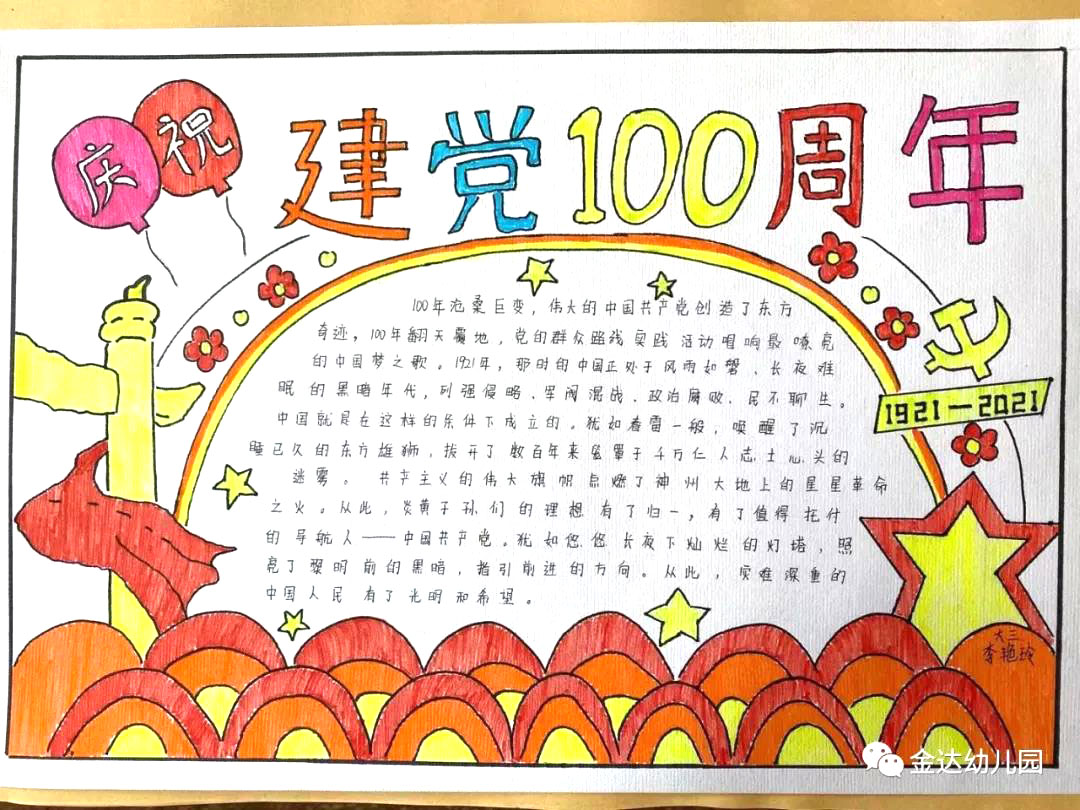 庆祝
建党100周年
100年沧桑巨变，伟大的中国共产党创造了东方
奇迹，100年翻天覆地，党的群众路线实践活动唱响最嘹亮
的中国梦之歌。1921年，那时的中国正处于风雨如磐、长夜难
眠的黑暗年代，列强侵略、军阀混战、政治腐败、民不聊生。
中国就是在这样的条件下成立的。犹如春雷一般，唤醒了沉
睡已久的东方雄狮，拔开了数百年来笼罩于千万仁人志士心头的
迷雾。共产主义的伟大旗帜点燃了神州大地上的星星革命
之火。从此，炎黄子孙们的理想有了归一，有了值得托付
的导航人——中国共产党。犹如悠悠长夜下灿烂的灯塔，照
亮了黎明前的黑暗，指引前进的方向。从此，灾难深重的
中国人民有了光明和希望。
1921—2021
大三
李艳玲
金达幼儿园